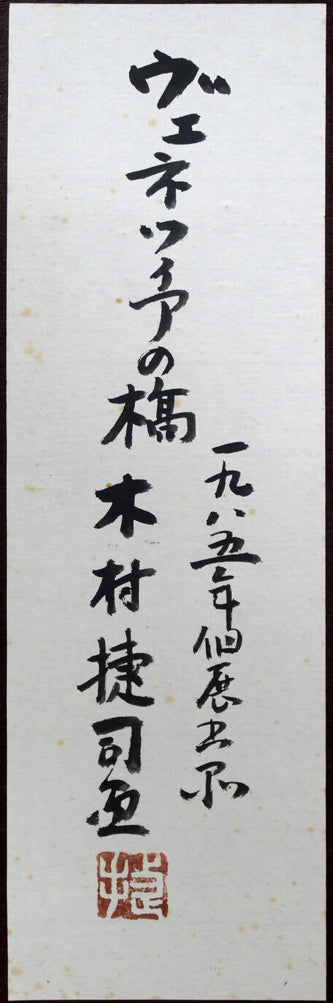 一九八五年個展出品
ヴェネツィアの橋 木村捷司画
捷